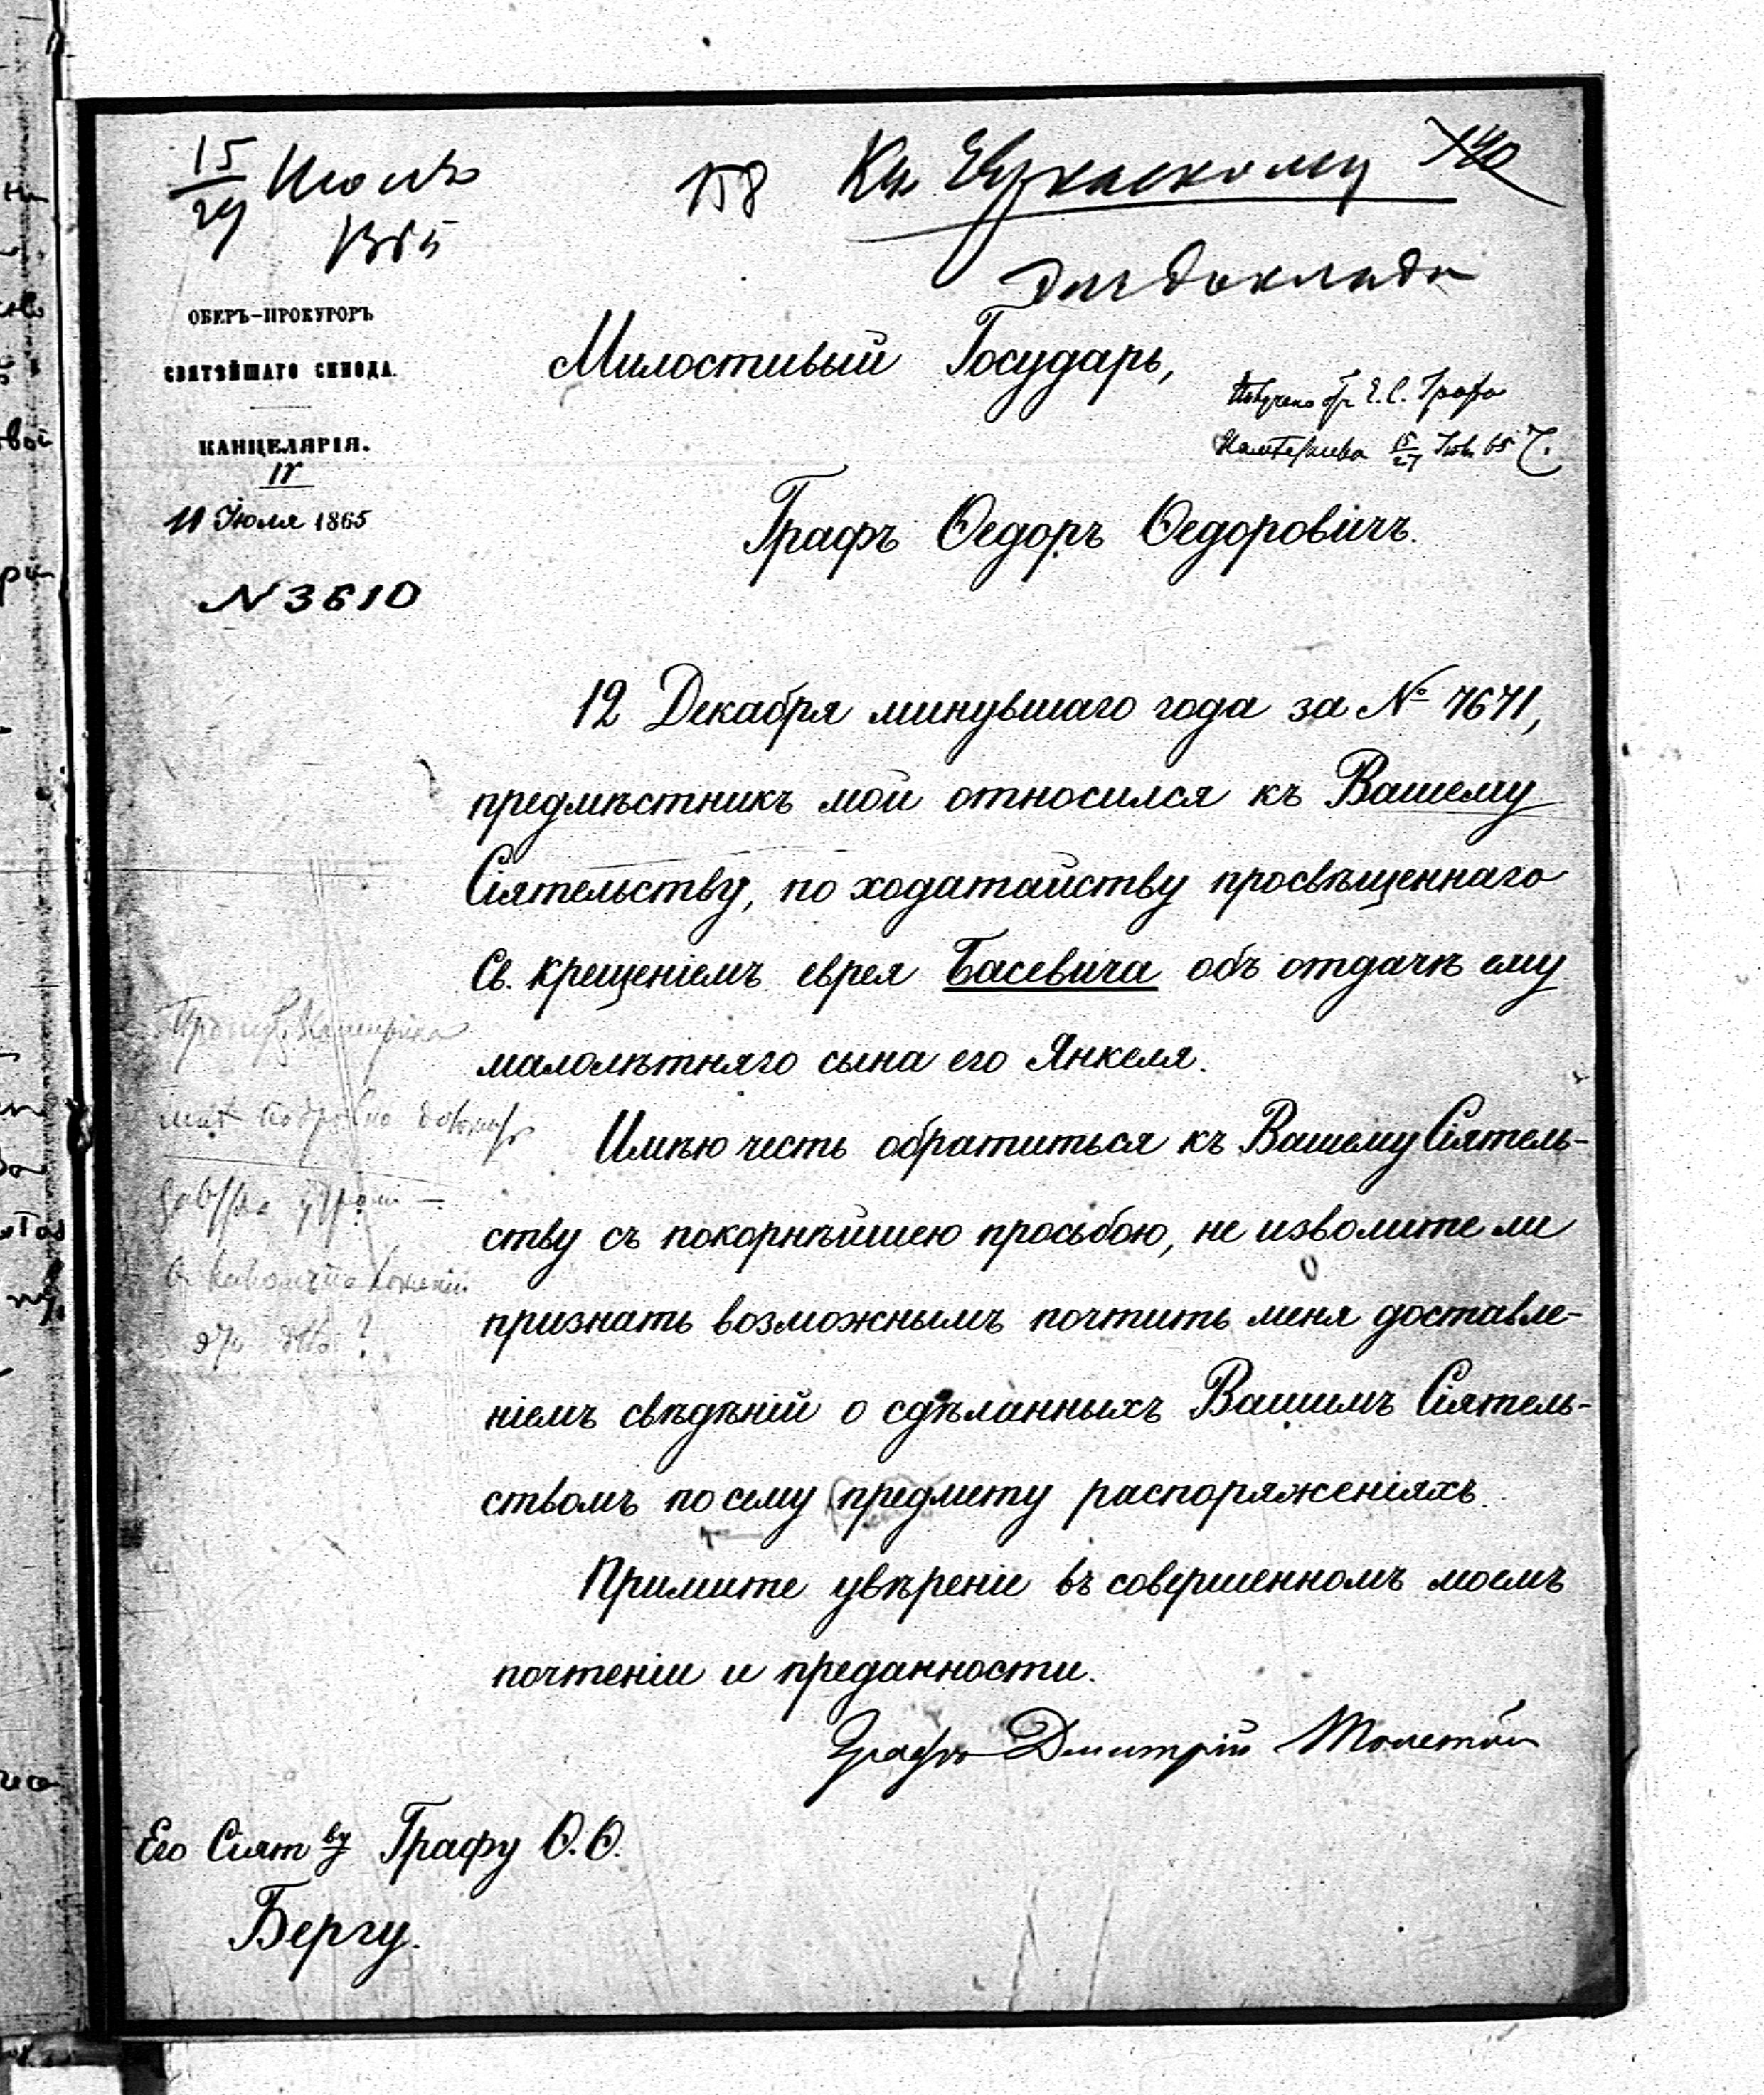 15/27 Июль
1865
158
140
для доклада
ОБЕРЪ-ПРОКУРОРЪ
СВЯТѢЙШАГО СИНОДА.
КАНЦЕЛЯРІЯ.
IV
11 Іюля 1865
N 3610
Милостивый Государь,
Получено отъ Е. С. Графа
Намѣстника 15/27 Іюл 65 г.
Графъ Ѳедоръ Ѳедоровичъ.
12 Декабря минувшаго года за № 7671,
предмѣстникъ мой относился къ Вашему
Сіятельству, по ходатайству просвѣщеннаго
Св. крещеніемъ еврея Басевича объ отдачѣ ему
малолѣтняго сына его Янкеля.
Имѣю честь обратиться къ Вашему Сіятель-
ству съ покорнѣйшею просьбою, не изволите ли
признать возможнымъ почтить меня доставле-
ніемъ свѣдѣній о сдѣланныхъ Вашимъ Сіятель-
ствомъ по сему предмету распоряженіяхъ.
Примите увѣреніе въ совершенномъ моемъ
почтеніи и преданности.
Графъ Дмитрій Толстой
Его Сіят ву Графу Ѳ. Ѳ.
Бергу.